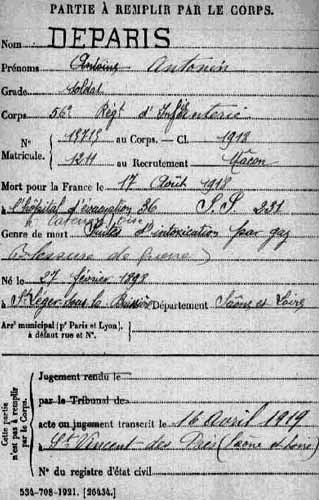 PARTIE À REMPLIR PAR LE CORPS.
Nom DÉPARIS
Prénoms Antoine Antonin
Grade Soldat
Corps 56e Régt d'Infanterie
No Matricule. 13715 au Corps. — Cl. 1918
1211 au Recrutement Mâcon
Mort pour la France le 17 Août 1918
à l'hôpital d'évacuation 36 S.P. 231
à Catenoy Oise
Genre de mort Suites d'intoxication par gaz
(Blessure de guerre)
Né le 27 février 1898
à St Léger-sous-la Bussière Département Saône et Loire
Arrt municipal (pr Paris et Lyon), à défaut rue et No.
Cette partie n'est pas à remplir par le Corps.
Jugement rendu le
par le Tribunal de
acte ou jugement transcrit le 16 Avril 1919
à St Vincent-des-Prés (Saône et Loire)
No du registre d'état civil
534-708-1921. [26434.]